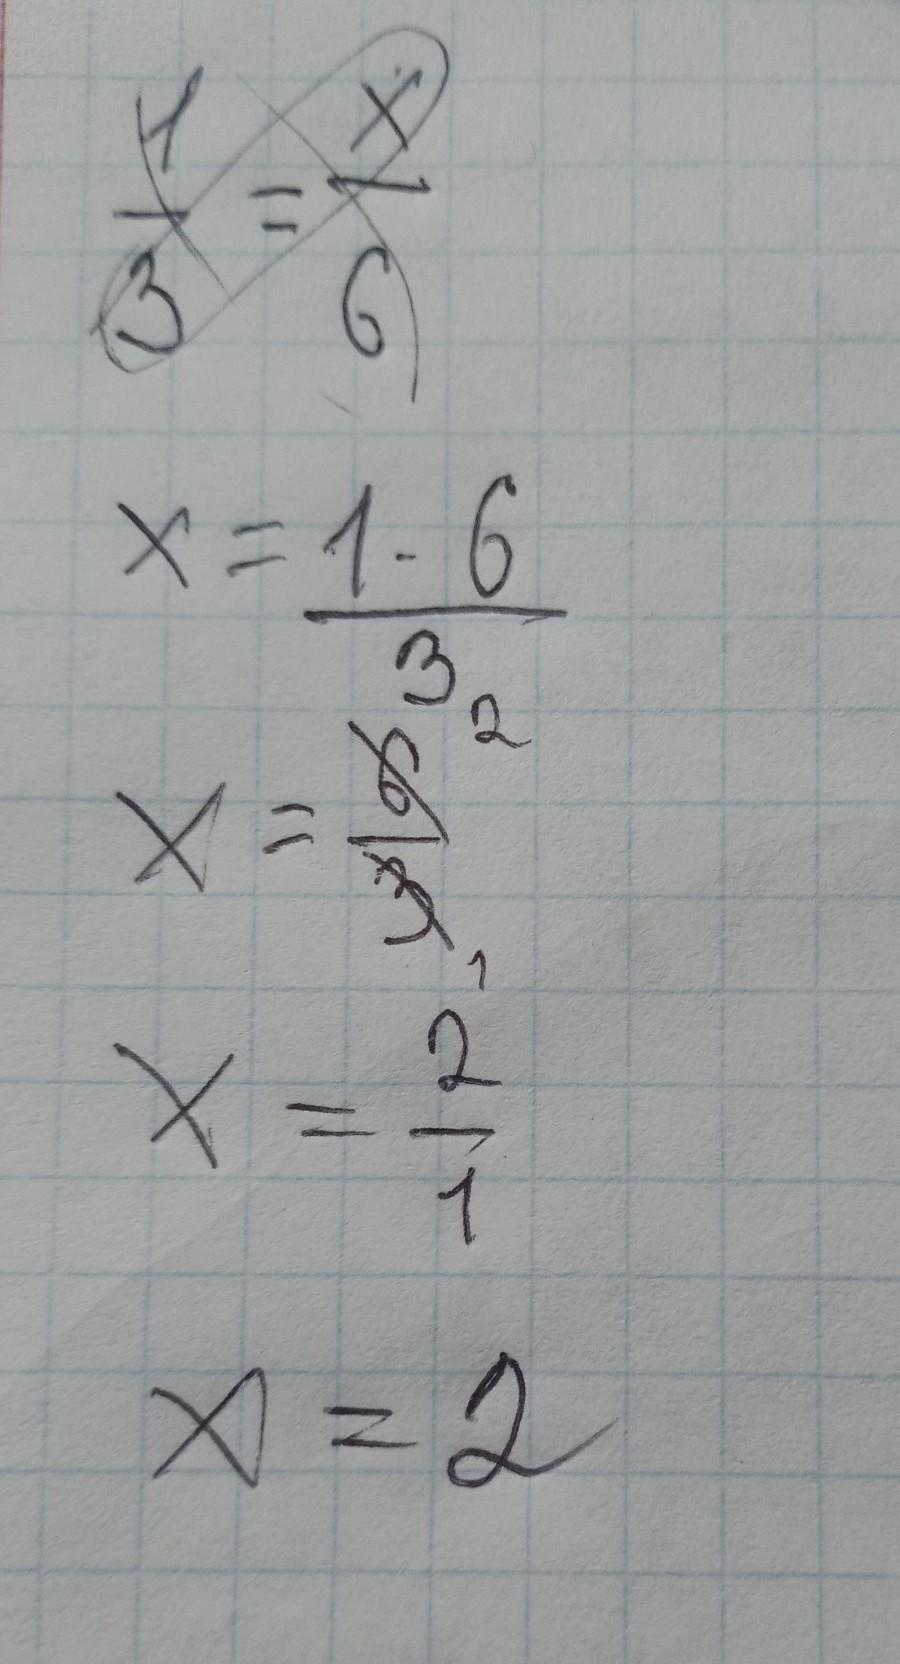 1/3 = x/6
x = 1·6/3
x = 6/3 2 1
x = 2/1
x = 2